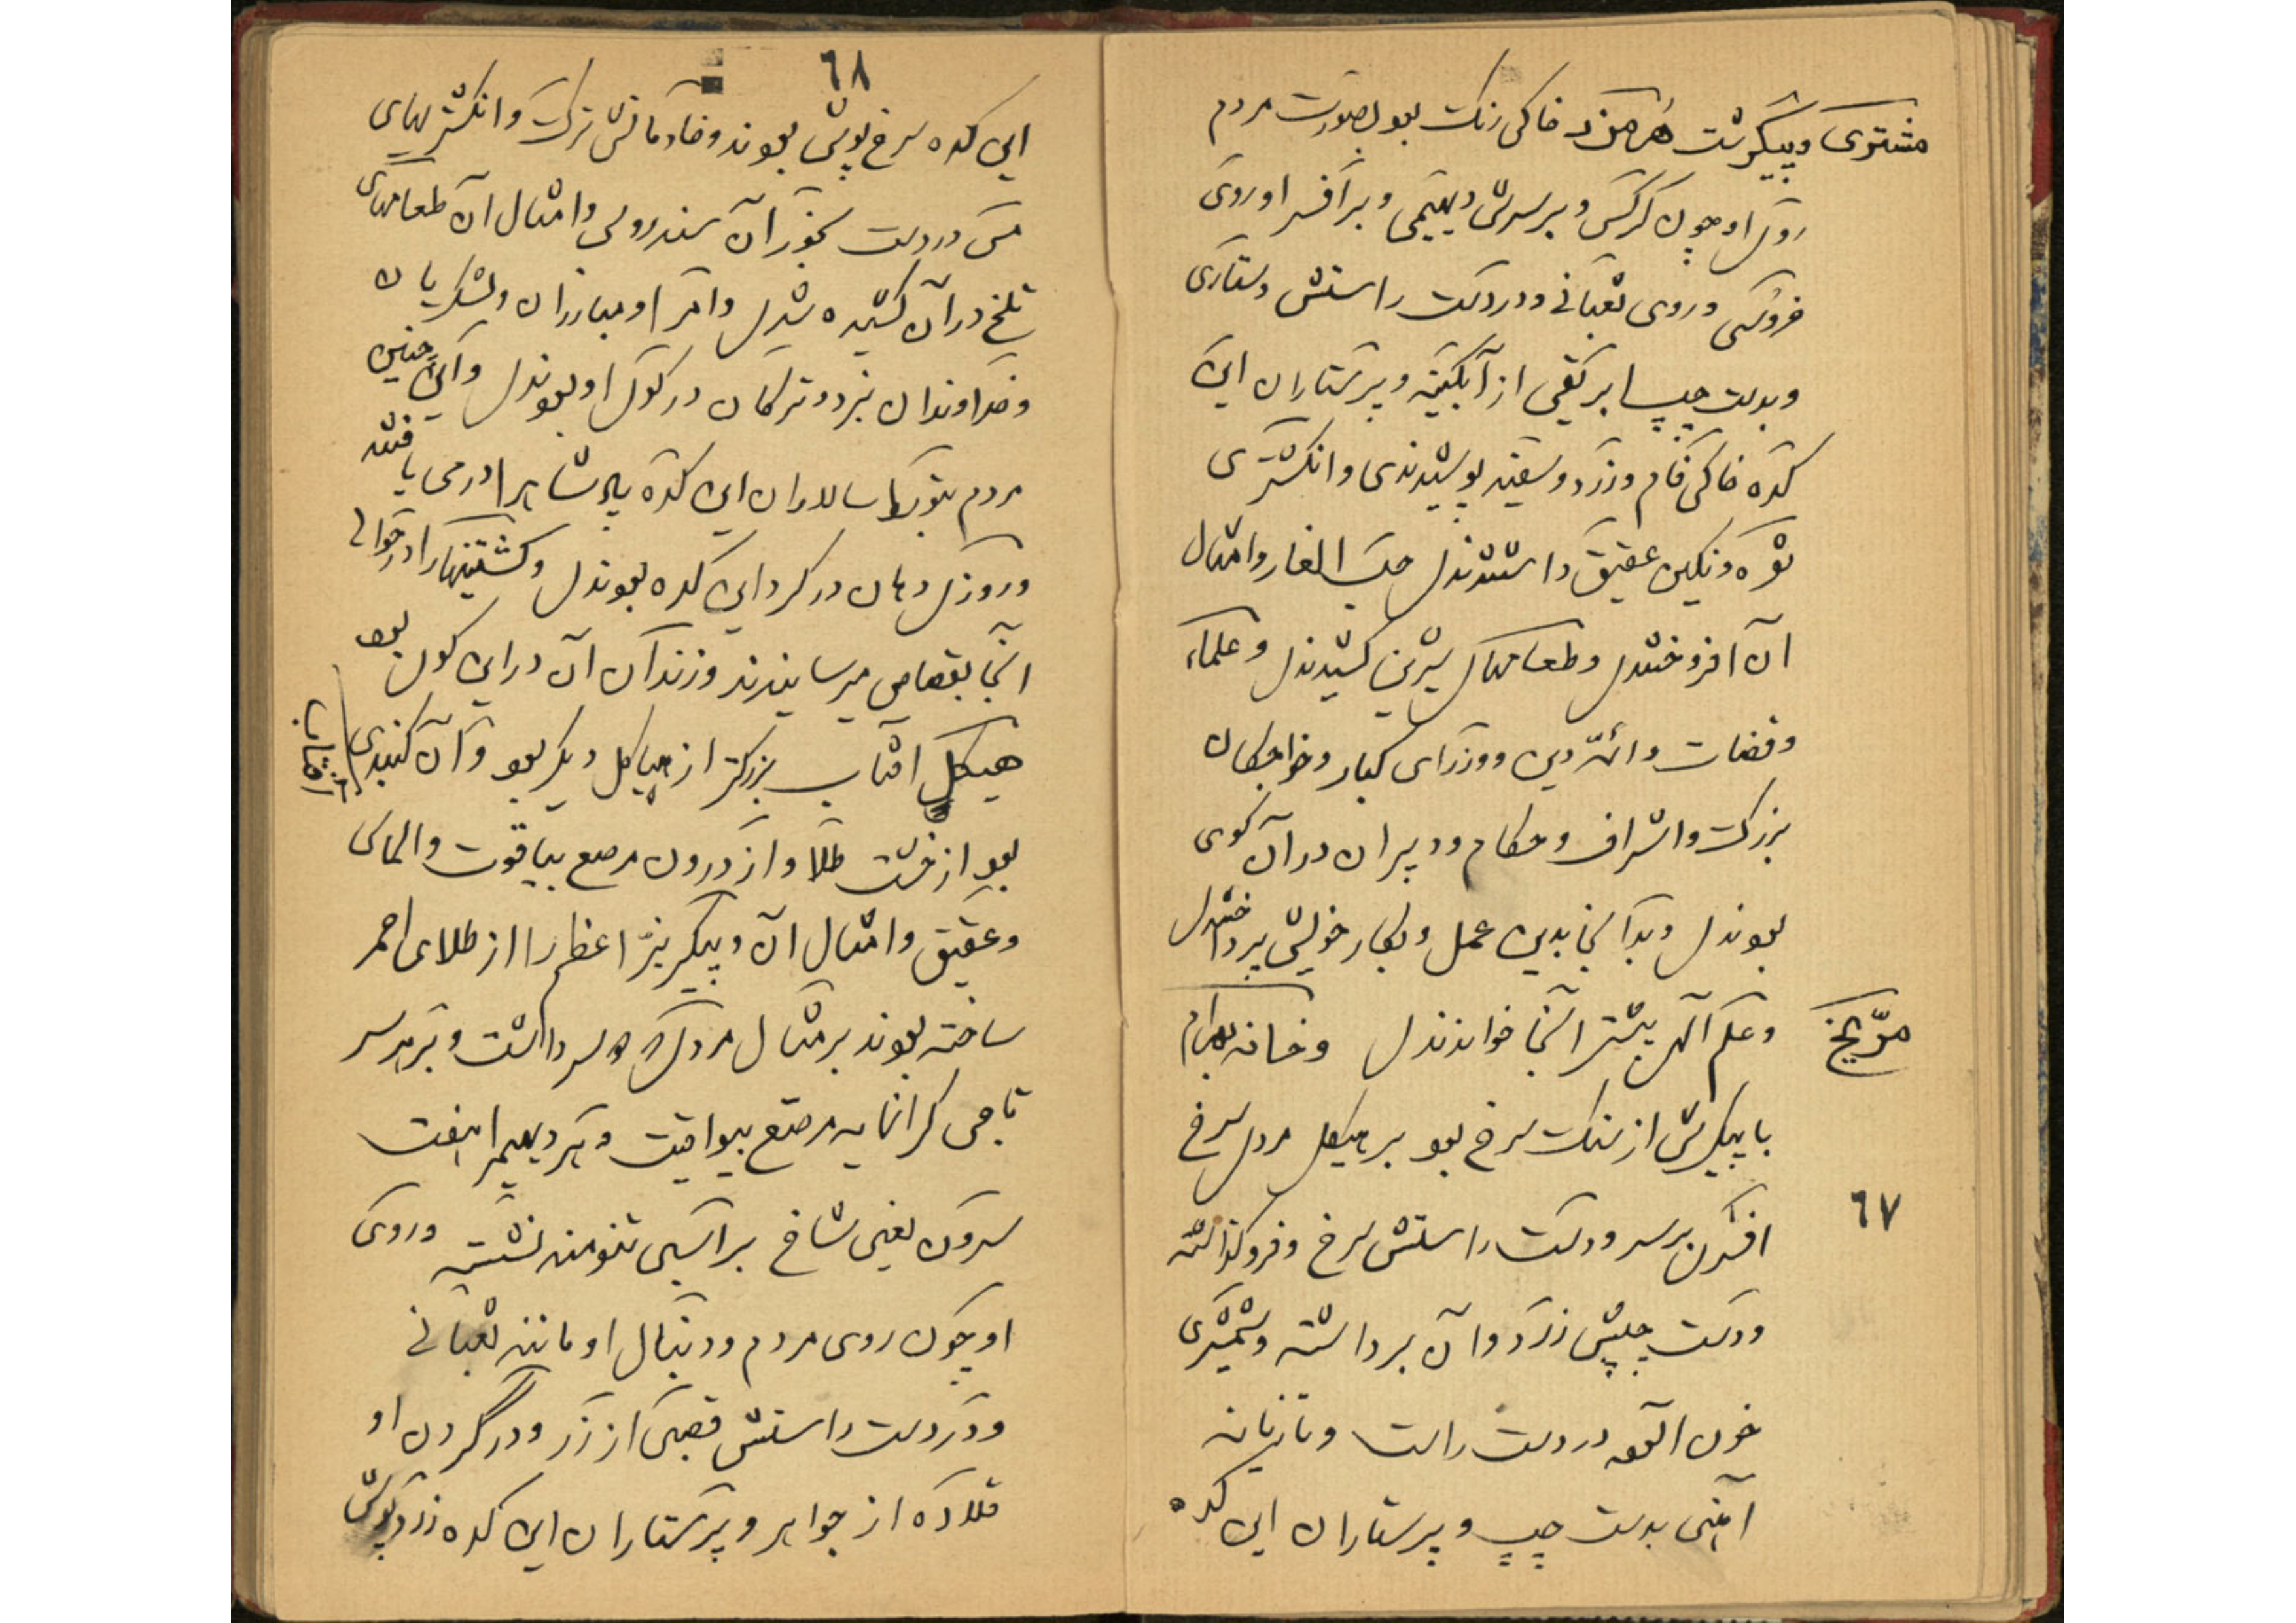 مشتری و پیکرت هرمزد خاکی رنگ بود بصورت مردم
روی او چون کرکس و بر سرش دیهیمی و بر افسر او روی
خروسی و روی ثعبانی و در دست راستش دستاری
و بدست چپ ابریقی از آبگینه و پرستاران این
کده خاکی فام و زرد و سفید پوشیدندی و انکشتری
نقره و نکین عقیق داشتندی حب الغار و امثال
آن افروختندی و طعامهای شیرین کشیدندی و علماء
و قضات و ائمه دین و وزرای کبار و خواجکان
بزرک و اشراف و حکام و دبیران در آن کوی
بودندی و بدانجا بدین عمل و بکار خویش پرداختندی
مریخ
و علم آلهی بیشتر آنجا خواندندی و خانه بهرام
با پیکرش از سنک سرخ بود بر هیکل مردی سرخ
٦٧
افسری بر سر و دست راستش سرخ و فروکذاشته
و دست چپش زرد و آن برداشته و شمشیری
خون آلود در دست راست و تازیانه
آهنی بدست چپ و پرستاران این کده
٦٨
این کده سرخ پوش بودند و خادمانش ترک و انکشتریهای
مس در دست بخور آن سندروس و امثال آن طعامهای
تلخ در آن کشیده شدی و امرا و مبارزان و لشکریان
و خداوندان نبرد و ترکان در کوی او بودندی و این چنین
مردم بتوسط سالاران این کده پادشاه را در می یافتند
و روزی دهان در کرد این کده بودندی و کشتنیها را در حوالی
آنجا بقصاص میرسانیدند و زندان آن در این کوی بود
هیکل آفتاب بزرکتر از هیاکل دیکر بود و آن کنبدی
آفتاب
بود از خشت طلا و از درون مرصع بیاقوت و الماس
و عقیق و امثال آن و پیکر نیر اعظم را از طلای احمر
ساخته بودند بر مثال مردی دو سر داشت و بر هر سر
تاجی کرانمایه مرصع بیواقیت و هر دیهیم را هفت
سرون یعنی شاخ بر اسبی تنومند نشسته و روی
او چون روی مردم و دنبال او مانند ثعبانی
و در دست راستش قضیبی از زر و در گردن او
قلاده از جواهر و پرستاران این کده زرد پوش